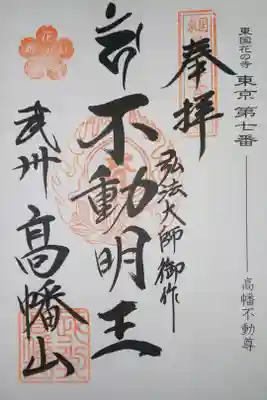 東国花の寺 東京 第七番 ―― 高幡不動尊
奉拝
弘法大師御作
不動明王
武州 高幡山